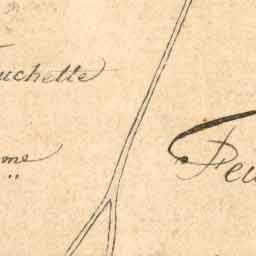 uchette
me
Peu